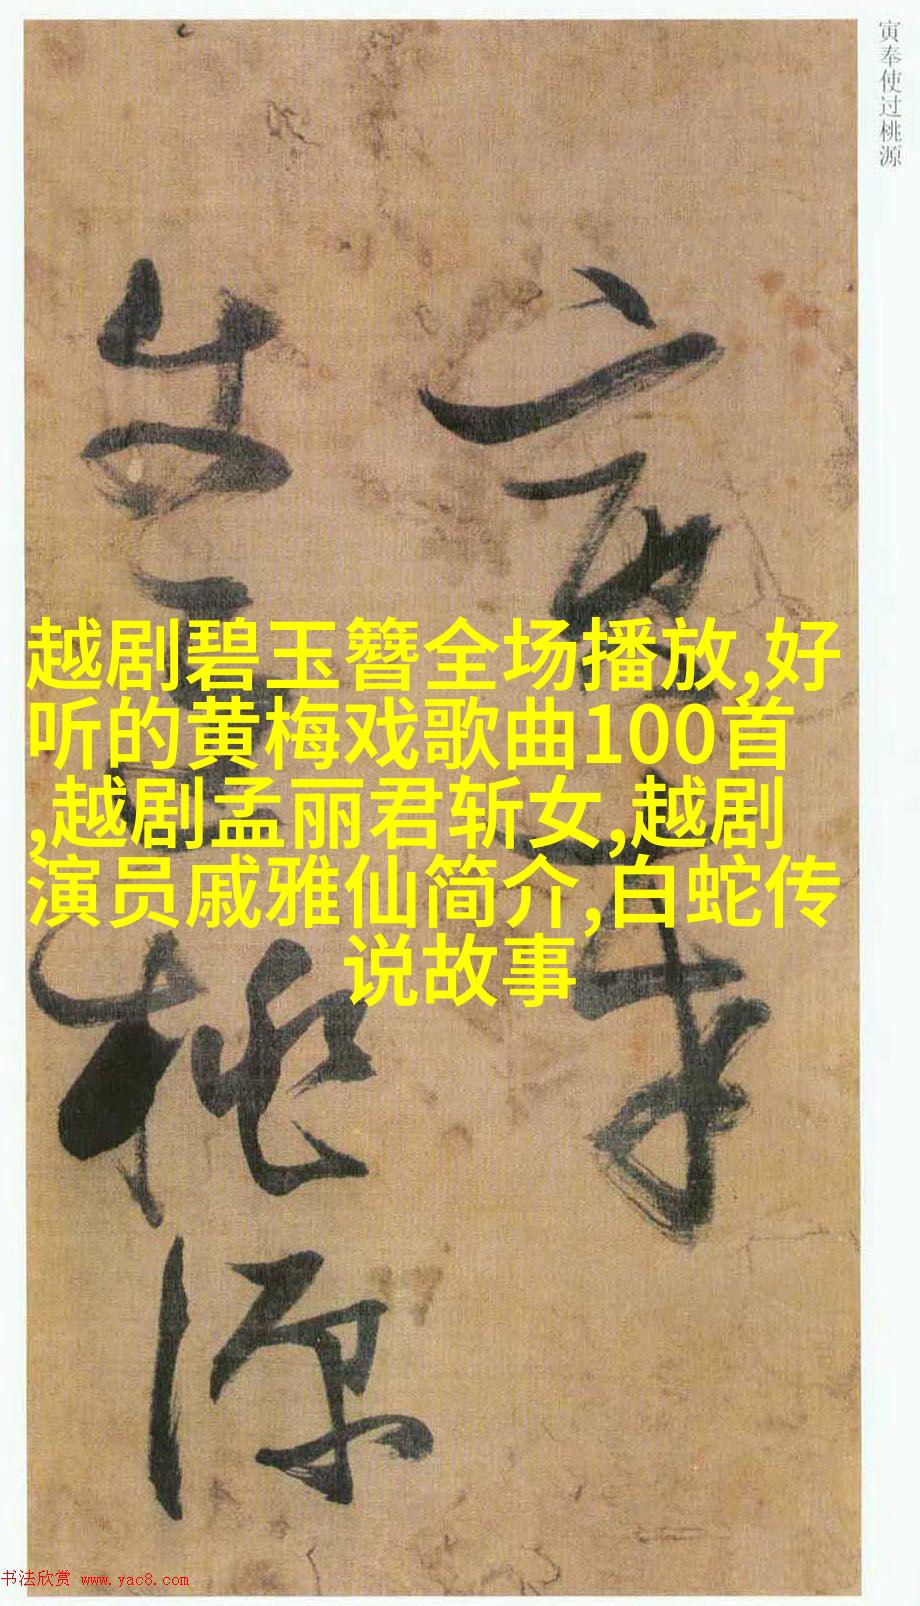 寅奉使过桃源
寅奉
桃源
越剧碧玉簪全场播放,好
听的黄梅戏歌曲100首
,越剧孟丽君斩女,越剧
演员戚雅仙简介,白蛇传
说故事
书法欣赏 www.yac8.com